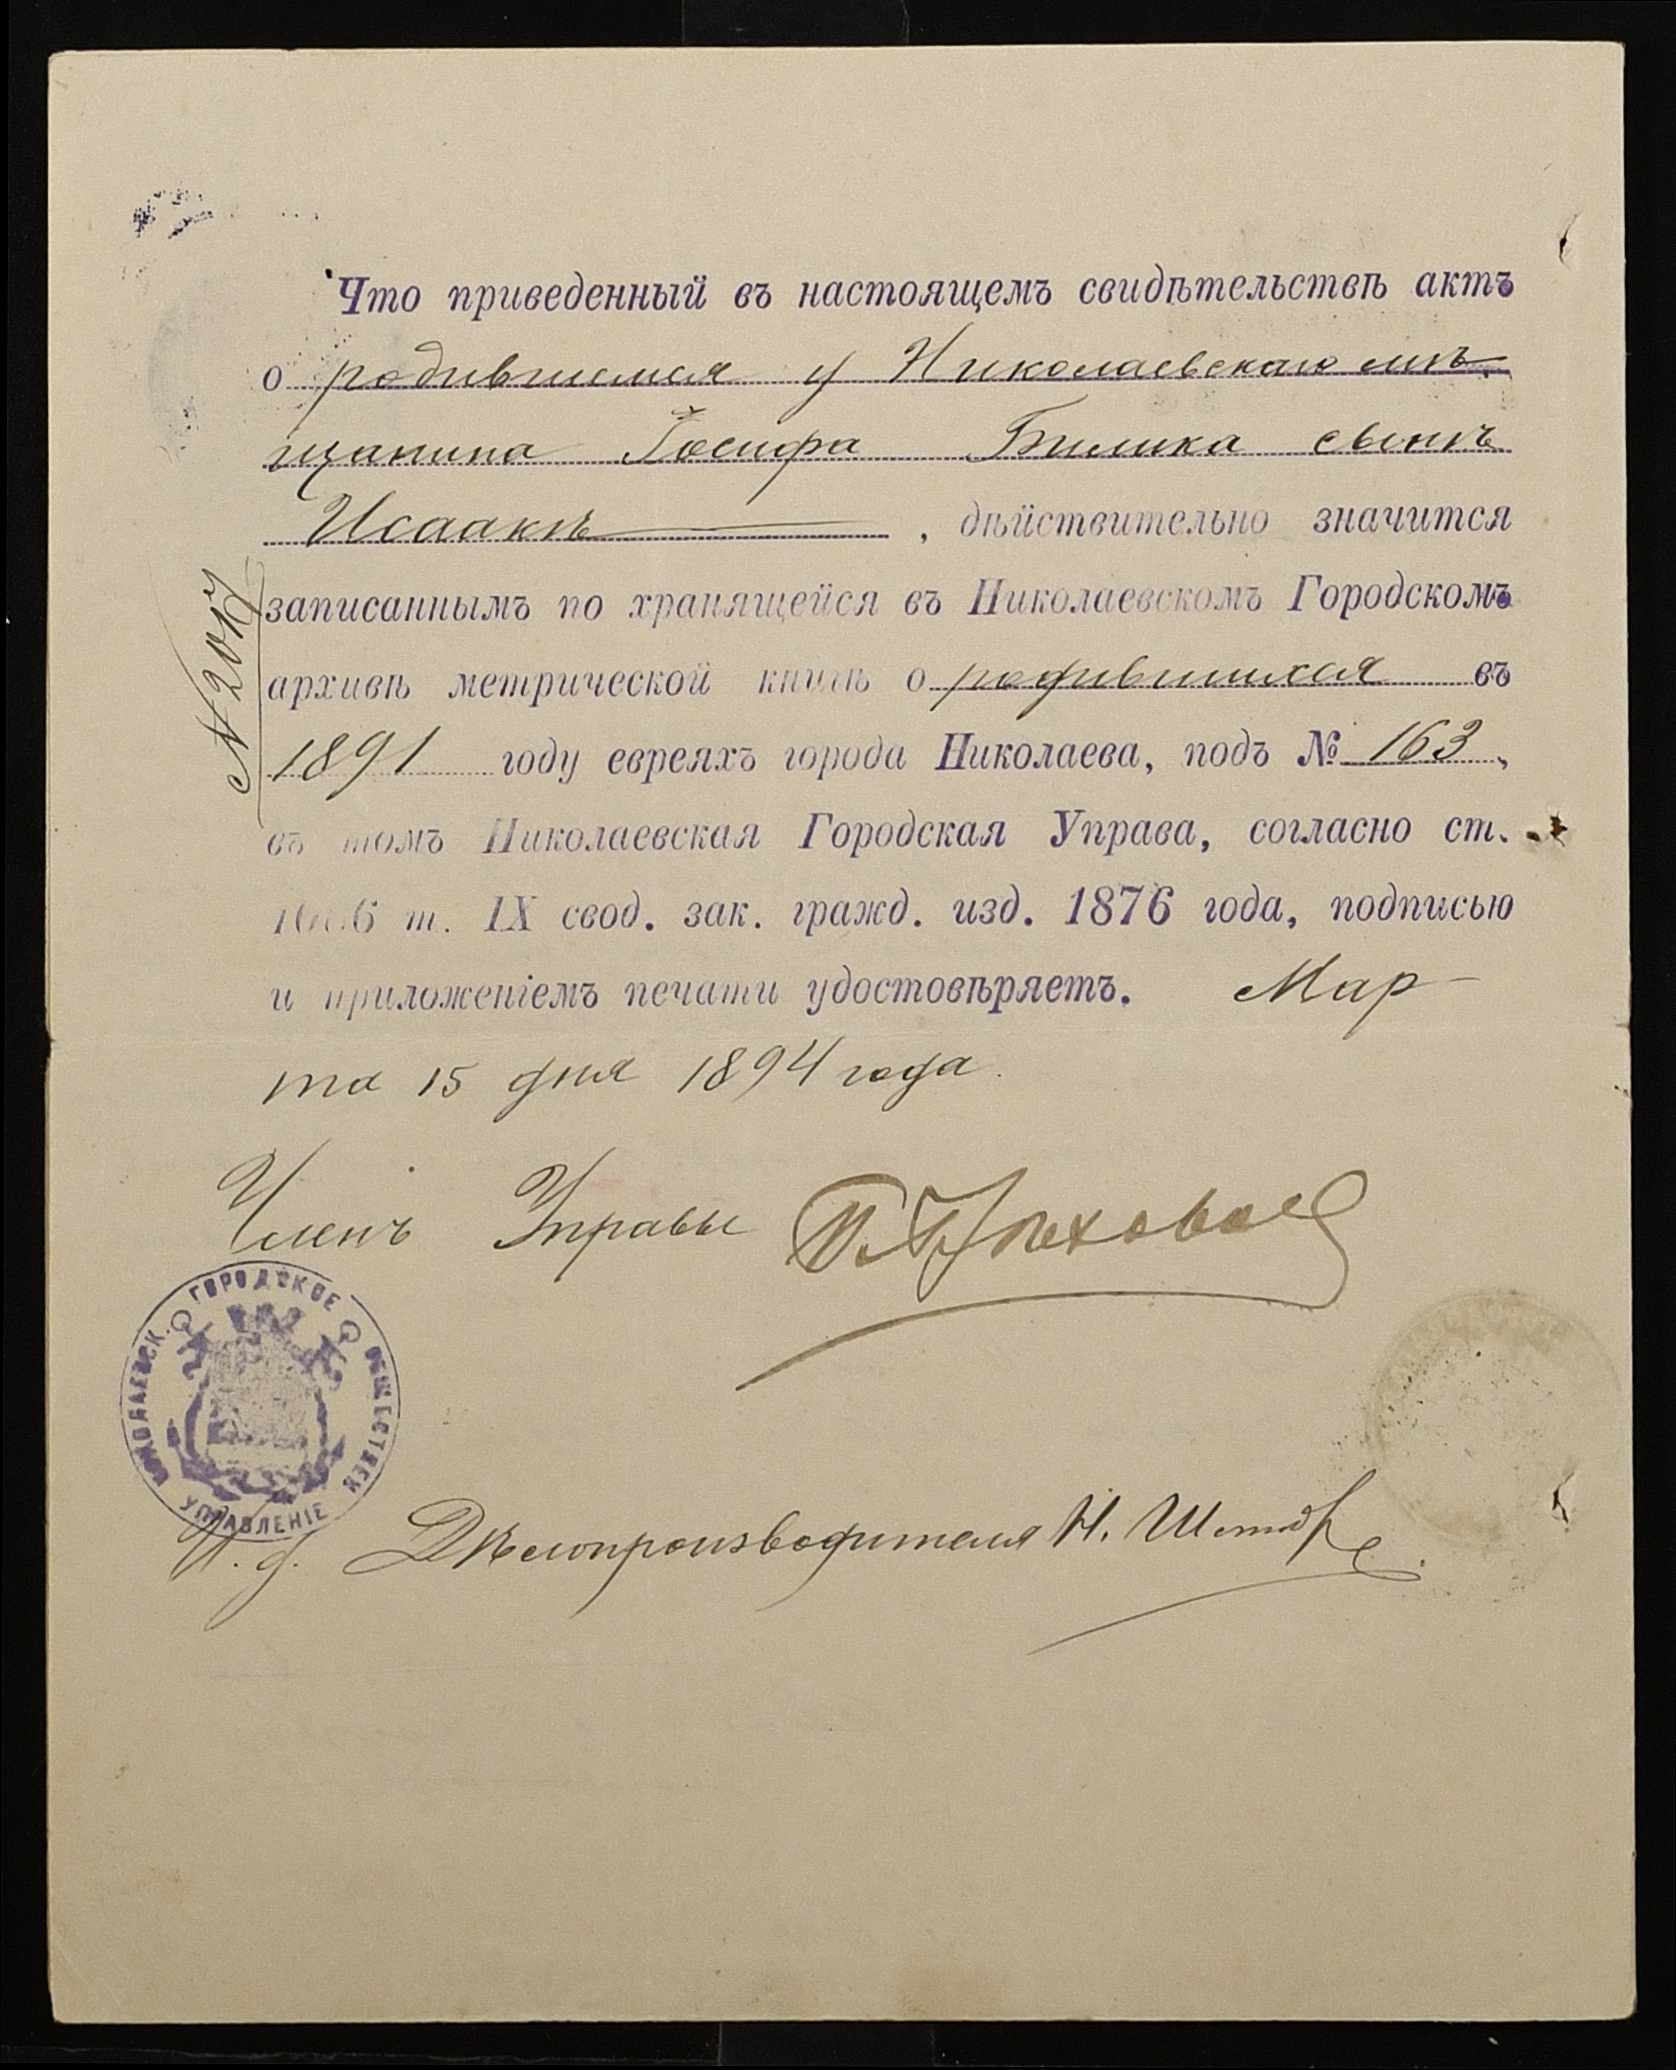 Что приведенный въ настоящемъ свидѣтельствѣ актъ
о родившемся у Николаевскаго мѣ-
щанина Іосифа Билика сынѣ
Исаакѣ, дѣйствительно значится
записаннымъ по хранящейся въ Николаевскомъ Городскомъ
архивѣ метрической книгѣ о родившихся въ
1891 году евреяхъ города Николаева, подъ № 163,
въ томъ Николаевская Городская Управа, согласно ст.
т. IX свод. зак. гражд. изд. 1876 года, подписью
и приложеніемъ печати удостовѣряетъ. Мар-
та 15 дня 1894 года.
Членъ Управы
НИКОЛАЕВСК. ГОРОДСКОЕ ОБЩЕСТВЕН. УПРАВЛЕНІЕ
И. д. Дѣлопроизводителя Н.